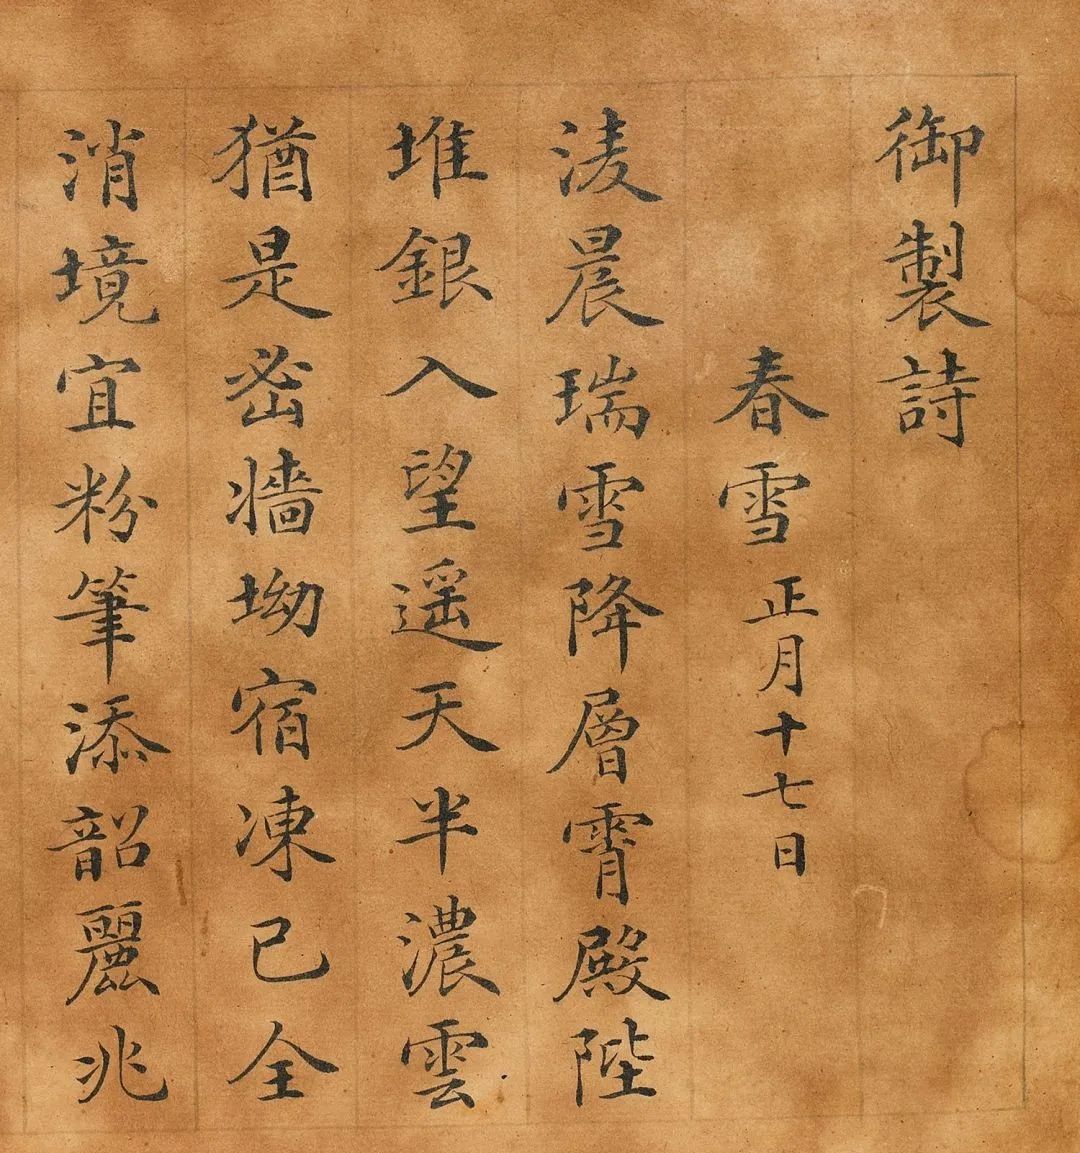 御製詩
春雪正月十七日
淩晨瑞雪降層霄殿陛
堆銀入望遥天半濃雲
猶是密牆坳宿凍已全
消境宜粉筆添韶麗兆